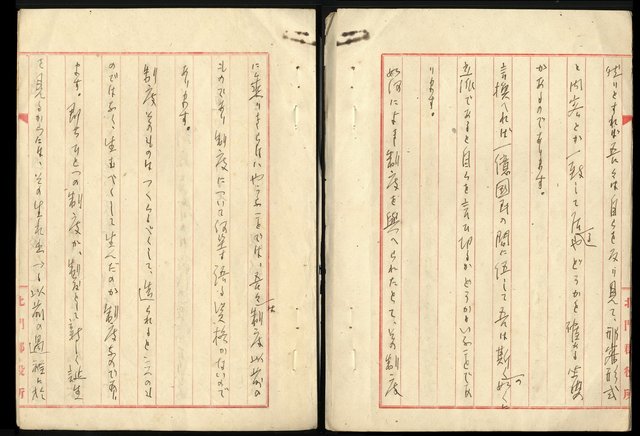 然りとすれば吾々は自らを反り見て、形式
と内容とが一致して居るかどうかを確める必要
があるものであります。
言換へれば一億国民の間に伍して吾は斯くの如く
立派であると自らを言ひ切るかどうかといふことであ
ります。
如何によき制度を与へられたとて、その制度
に乗りきらないやうなことでは、吾々は制度以前の
ものであり、制度について何等語る資格がないので
あります。
制度そのものはつくるものでなくして、造られると云ふも
のではなく、生むべくして生んだのが制度なのであり
ます。即ち ひとつの制度が、制度として新しく誕生
を見るからには、その生れ出づる以前の過程に於
北門郡役所
北門郡役所